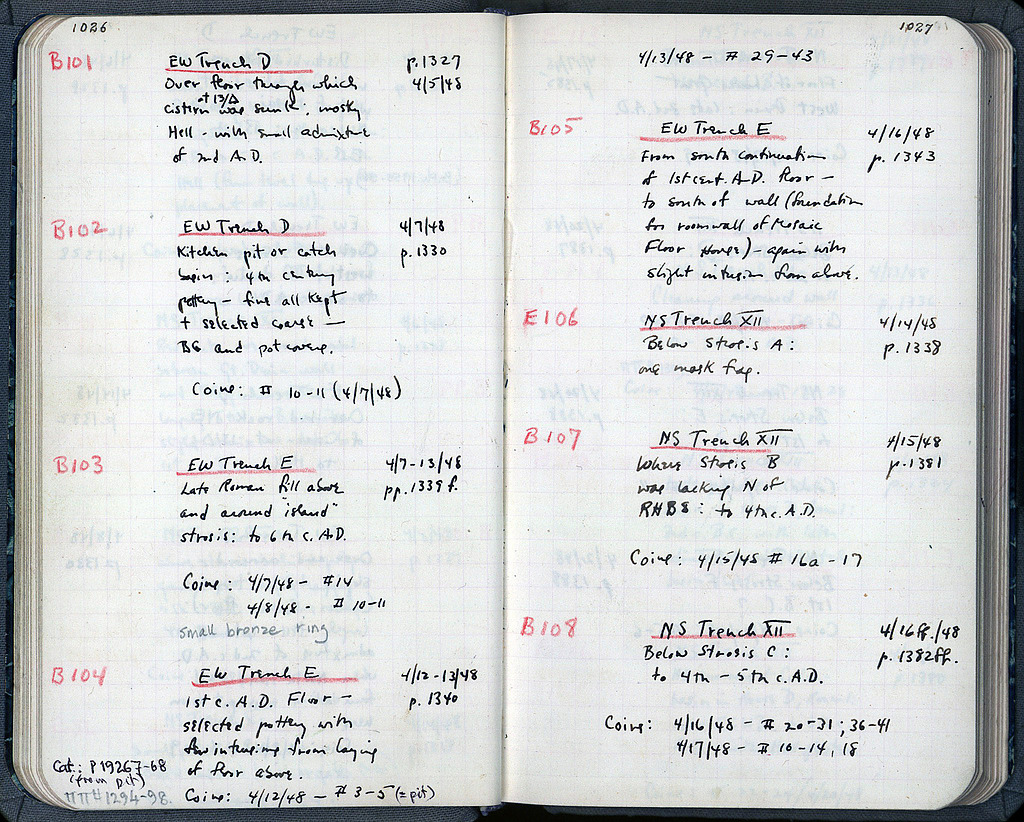 1026
B101 EW Trench D p.1327
Over floor through which 4/5/48
at 13/Δ
cistern was sunk; mostly
Hell - with small admixture
of 2nd A.D.
B102 EW Trench D 4/7/48
Kitchen pit or catch p.1330
basin: 4th century
pottery - fine all kept
+ selected coarse -
BG and pot covers.
Coins: # 10-11 (4/7/48)
B103 EW Trench E 4/7-13/48
Late Roman fill above pp.1339 f.
and around "island"
strosis: to 6th c. A.D.
Coins: 4/7/48 - #14
4/8/48 - # 10-11
small bronze ring
B104 EW Trench E 4/12-13/48
1st c. A.D. Floor - p.1340
selected pottery with
few intrusions from laying
of floor above.
Cat.: P19267-68
(from pit)
1294-98.
Coins: 4/12/48 - # 3-5 (= pit)
1027
4/13/48 - # 29-43
B105 EW Trench E 4/16/48
From south continuation p. 1343
of 1st cent. A.D. floor -
to south of wall (foundation
for room wall of Mosaic
Floor House) again with
slight intrusion from above.
E106 NS Trench XII 4/14/48
Below Strosis A: p.1338
one mask frag.
B107 NS Trench XII 4/15/48
Where Strosis B p.1381
was lacking N of
RHBS: to 4th c. A.D.
Coins: 4/15/48 # 16a - 17
B108 NS Trench XII 4/16ff./48
Below Strosis C: p.1382ff.
to 4th - 5th c. A.D.
Coins: 4/16/48 - # 20-31; 36-41
4/17/48 - # 10-14, 18